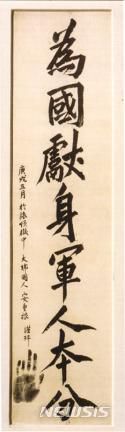 為國獻身軍人本分
庚戌三月 於旅順獄中 大韓國人 安重根 謹拜
NEWSIS